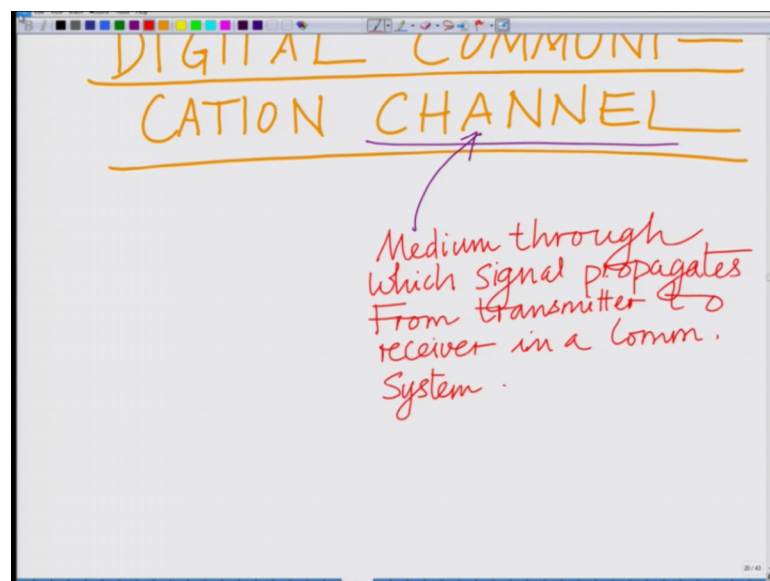 DIGITAL COMMUNI-
CATION CHANNEL
Medium through
which signal propagates
From transmitter to
receiver in a Comm.
System.
20/43